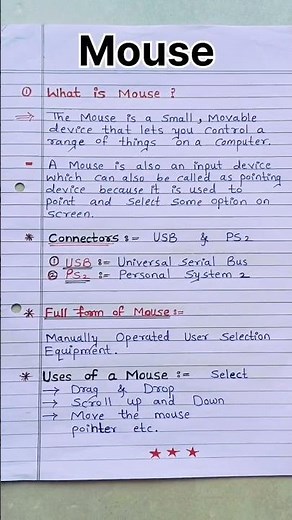 Mouse
① What is Mouse ?
⇒ The Mouse is a small, Movable
device that lets you control a
range of things on a computer.
- A Mouse is also an input device
which can also be called as pointing
device because it is used to
point and select some option on
screen.
* Connectors :- USB & PS2
① USB :- Universal Serial Bus
② PS2 :- Personal System 2
* Full form of Mouse :-
Manually Operated User Selection
Equipment.
* Uses of a Mouse :- Select
→ Drag & Drop
→ Scroll up and Down
→ Move the mouse
pointer etc.